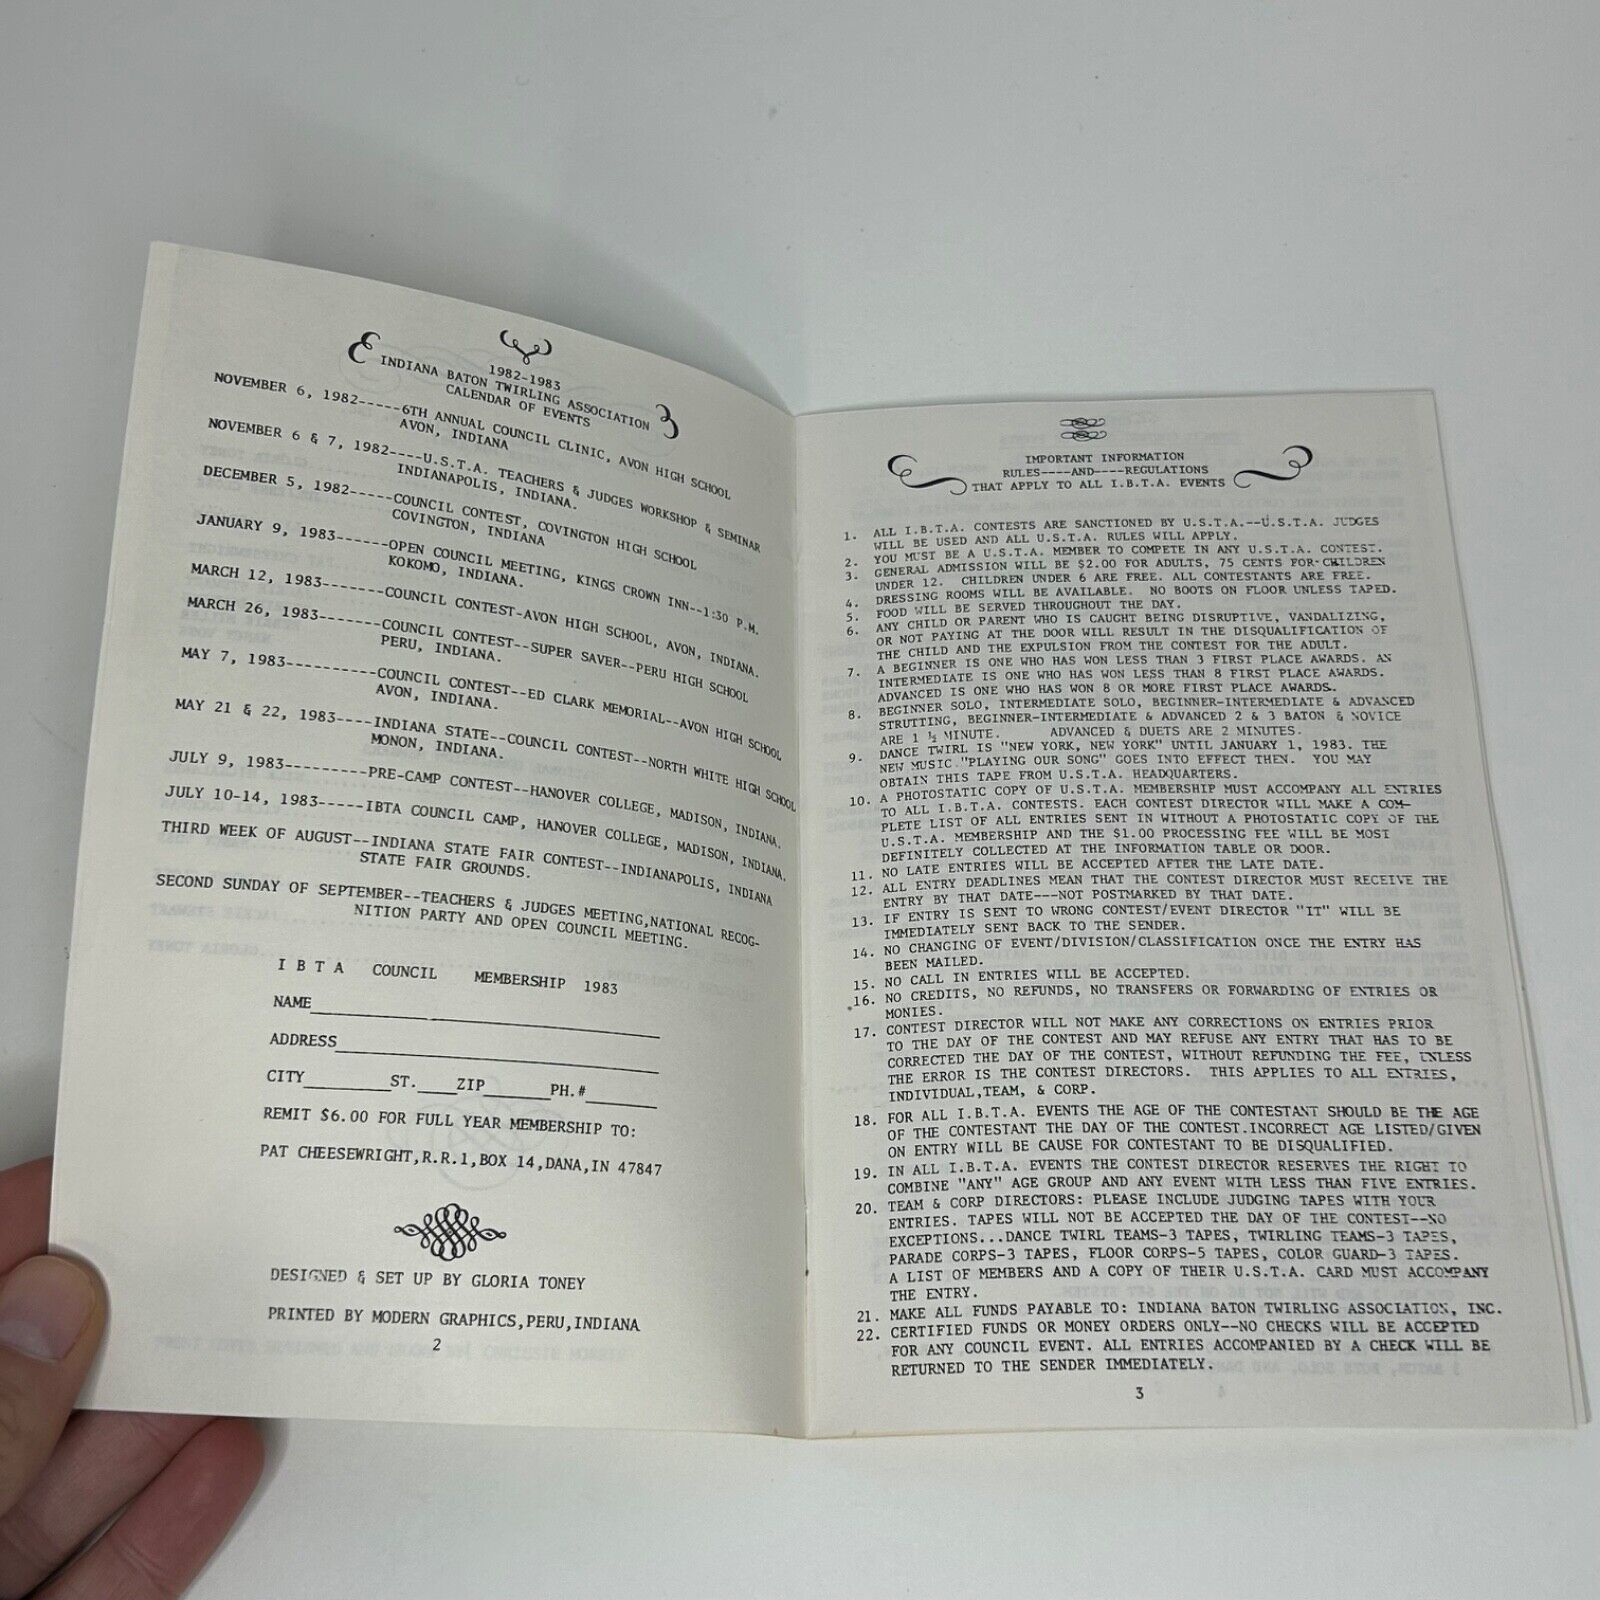 1982-1983
INDIANA BATON TWIRLING ASSOCIATION
CALENDAR OF EVENTS
NOVEMBER 6, 1982-----6TH ANNUAL COUNCIL CLINIC, AVON HIGH SCHOOL
AVON, INDIANA
NOVEMBER 6 & 7, 1982----U.S.T.A. TEACHERS & JUDGES WORKSHOP & SEMINAR
INDIANAPOLIS, INDIANA.
DECEMBER 5, 1982-----COUNCIL CONTEST, COVINGTON HIGH SCHOOL
COVINGTON, INDIANA
JANUARY 9, 1983------OPEN COUNCIL MEETING, KINGS CROWN INN--1:30 P.M.
KOKOMO, INDIANA.
MARCH 12, 1983-------COUNCIL CONTEST-AVON HIGH SCHOOL, AVON, INDIANA.
MARCH 26, 1983-------COUNCIL CONTEST--SUPER SAVER--PERU HIGH SCHOOL
PERU, INDIANA.
MAY 7, 1983----------COUNCIL CONTEST--ED CLARK MEMORIAL--AVON HIGH SCHOOL
AVON, INDIANA.
MAY 21 & 22, 1983----INDIANA STATE--COUNCIL CONTEST--NORTH WHITE HIGH SCHOOL
MONON, INDIANA.
JULY 9, 1983---------PRE-CAMP CONTEST--HANOVER COLLEGE, MADISON, INDIANA.
JULY 10-14, 1983-----IBTA COUNCIL CAMP, HANOVER COLLEGE, MADISON, INDIANA.
THIRD WEEK OF AUGUST--INDIANA STATE FAIR CONTEST--INDIANAPOLIS, INDIANA
STATE FAIR GROUNDS.
SECOND SUNDAY OF SEPTEMBER--TEACHERS & JUDGES MEETING,NATIONAL RECOG-
NITION PARTY AND OPEN COUNCIL MEETING.
I B T A COUNCIL MEMBERSHIP 1983
NAME
ADDRESS
CITY__________ST.____ZIP_______PH.#________
REMIT $6.00 FOR FULL YEAR MEMBERSHIP TO:
PAT CHEESEWRIGHT,R.R.1,BOX 14,DANA,IN 47847
DESIGNED & SET UP BY GLORIA TONEY
PRINTED BY MODERN GRAPHICS,PERU,INDIANA
2
IMPORTANT INFORMATION
RULES----AND----REGULATIONS
THAT APPLY TO ALL I.B.T.A. EVENTS
1. ALL I.B.T.A. CONTESTS ARE SANCTIONED BY U.S.T.A.--U.S.T.A. JUDGES
WILL BE USED AND ALL U.S.T.A. RULES WILL APPLY.
2. YOU MUST BE A U.S.T.A. MEMBER TO COMPETE IN ANY U.S.T.A. CONTEST.
3. GENERAL ADMISSION WILL BE $2.00 FOR ADULTS, 75 CENTS FOR CHILDREN
UNDER 12. CHILDREN UNDER 6 ARE FREE. ALL CONTESTANTS ARE FREE.
4. DRESSING ROOMS WILL BE AVAILABLE. NO BOOTS ON FLOOR UNLESS TAPED.
5. FOOD WILL BE SERVED THROUGHOUT THE DAY.
6. ANY CHILD OR PARENT WHO IS CAUGHT BEING DISRUPTIVE, VANDALIZING,
OR NOT PAYING AT THE DOOR WILL RESULT IN THE DISQUALIFICATION OF
THE CHILD AND THE EXPULSION FROM THE CONTEST FOR THE ADULT.
7. A BEGINNER IS ONE WHO HAS WON LESS THAN 3 FIRST PLACE AWARDS. AN
INTERMEDIATE IS ONE WHO HAS WON LESS THAN 8 FIRST PLACE AWARDS.
ADVANCED IS ONE WHO HAS WON 8 OR MORE FIRST PLACE AWARDS.
8. BEGINNER SOLO, INTERMEDIATE SOLO, BEGINNER-INTERMEDIATE & ADVANCED
STRUTTING, BEGINNER-INTERMEDIATE & ADVANCED 2 & 3 BATON & NOVICE
ARE 1 ½ MINUTE. ADVANCED & DUETS ARE 2 MINUTES.
9. DANCE TWIRL IS "NEW YORK, NEW YORK" UNTIL JANUARY 1, 1983. THE
NEW MUSIC "PLAYING OUR SONG" GOES INTO EFFECT THEN. YOU MAY
OBTAIN THIS TAPE FROM U.S.T.A. HEADQUARTERS.
10. A PHOTOSTATIC COPY OF U.S.T.A. MEMBERSHIP MUST ACCOMPANY ALL ENTRIES
TO ALL I.B.T.A. CONTESTS. EACH CONTEST DIRECTOR WILL MAKE A COM-
PLETE LIST OF ALL ENTRIES SENT IN WITHOUT A PHOTOSTATIC COPY OF THE
U.S.T.A. MEMBERSHIP AND THE $1.00 PROCESSING FEE WILL BE MOST
DEFINITELY COLLECTED AT THE INFORMATION TABLE OR DOOR.
11. NO LATE ENTRIES WILL BE ACCEPTED AFTER THE LATE DATE.
12. ALL ENTRY DEADLINES MEAN THAT THE CONTEST DIRECTOR MUST RECEIVE THE
ENTRY BY THAT DATE---NOT POSTMARKED BY THAT DATE.
13. IF ENTRY IS SENT TO WRONG CONTEST/EVENT DIRECTOR "IT" WILL BE
IMMEDIATELY SENT BACK TO THE SENDER.
14. NO CHANGING OF EVENT/DIVISION/CLASSIFICATION ONCE THE ENTRY HAS
BEEN MAILED.
15. NO CALL IN ENTRIES WILL BE ACCEPTED.
16. NO CREDITS, NO REFUNDS, NO TRANSFERS OR FORWARDING OF ENTRIES OR
MONIES.
17. CONTEST DIRECTOR WILL NOT MAKE ANY CORRECTIONS ON ENTRIES PRIOR
TO THE DAY OF THE CONTEST AND MAY REFUSE ANY ENTRY THAT HAS TO BE
CORRECTED THE DAY OF THE CONTEST, WITHOUT REFUNDING THE FEE, UNLESS
THE ERROR IS THE CONTEST DIRECTORS. THIS APPLIES TO ALL ENTRIES,
INDIVIDUAL,TEAM, & CORP.
18. FOR ALL I.B.T.A. EVENTS THE AGE OF THE CONTESTANT SHOULD BE THE AGE
OF THE CONTESTANT THE DAY OF THE CONTEST.INCORRECT AGE LISTED/GIVEN
ON ENTRY WILL BE CAUSE FOR CONTESTANT TO BE DISQUALIFIED.
19. IN ALL I.B.T.A. EVENTS THE CONTEST DIRECTOR RESERVES THE RIGHT TO
COMBINE "ANY" AGE GROUP AND ANY EVENT WITH LESS THAN FIVE ENTRIES.
20. TEAM & CORP DIRECTORS: PLEASE INCLUDE JUDGING TAPES WITH YOUR
ENTRIES. TAPES WILL NOT BE ACCEPTED THE DAY OF THE CONTEST--NO
EXCEPTIONS...DANCE TWIRL TEAMS-3 TAPES, TWIRLING TEAMS-3 TAPES,
PARADE CORPS-3 TAPES, FLOOR CORPS-5 TAPES, COLOR GUARD-3 TAPES.
A LIST OF MEMBERS AND A COPY OF THEIR U.S.T.A. CARD MUST ACCOMPANY
THE ENTRY.
21. MAKE ALL FUNDS PAYABLE TO: INDIANA BATON TWIRLING ASSOCIATION, INC.
22. CERTIFIED FUNDS OR MONEY ORDERS ONLY--NO CHECKS WILL BE ACCEPTED
FOR ANY COUNCIL EVENT. ALL ENTRIES ACCOMPANIED BY A CHECK WILL BE
RETURNED TO THE SENDER IMMEDIATELY.
3